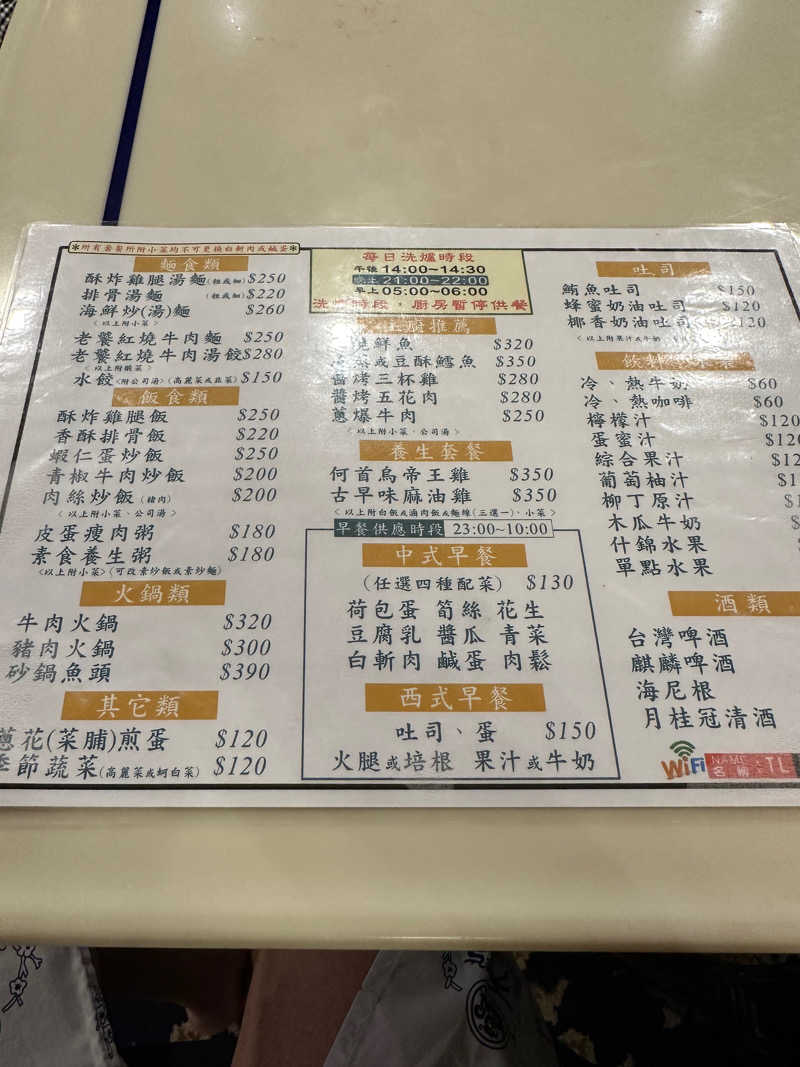 *所有套餐所附小菜均不可更換白斬肉或鹹蛋*
麵食類
酥炸雞腿湯麵(粗或細) $250
排骨湯麵 (粗或細) $220
海鮮炒(湯)麵 $260
<以上附小菜>
老饕紅燒牛肉麵 $250
老饕紅燒牛肉湯餃 $280
<以上附酸菜>
水餃<附公司湯>(高麗菜或韭菜) $150
飯食類
酥炸雞腿飯 $250
香酥排骨飯 $220
蝦仁蛋炒飯 $250
青椒牛肉炒飯 $200
肉絲炒飯(豬肉) $200
<以上附小菜、公司湯>
皮蛋瘦肉粥 $180
素食養生粥 $180
<以上附小菜>(可改素炒飯或素炒麵)
火鍋類
牛肉火鍋 $320
豬肉火鍋 $300
砂鍋魚頭 $390
其它類
蔥花(菜脯)煎蛋 $120
季節蔬菜(高麗菜或蚵白菜) $120
每日洗爐時段
午後 14:00~14:30
晚上 21:00~22:00
早上 05:00~06:00
洗爐時段,廚房暫停供餐
推薦
燒鮮魚 $320
或豆酥鱈魚 $350
醬烤三杯雞 $280
醬烤五花肉 $280
蔥爆牛肉 $250
<以上附小菜、公司湯>
養生套餐
何首烏帝王雞 $350
古早味麻油雞 $350
<以上附白飯或滷肉飯或麵線(三選一)、小菜>
早餐供應時段 23:00~10:00
中式早餐
(任選四種配菜) $130
荷包蛋 筍絲 花生
豆腐乳 醬瓜 青菜
白斬肉 鹹蛋 肉鬆
西式早餐
吐司、蛋 $150
火腿或培根 果汁或牛奶
吐司
鮪魚吐司 $150
蜂蜜奶油吐司 $120
椰香奶油吐司 $120
<以上附果汁或牛奶
飲料
冷、熱牛奶 $60
冷、熱咖啡 $60
檸檬汁 $120
蛋蜜汁
綜合果汁
葡萄柚汁
柳丁原汁
木瓜牛奶
什錦水果
單點水果
酒類
台灣啤酒
麒麟啤酒
海尼根
月桂冠清酒
WiFi NAME
名稱 : TL